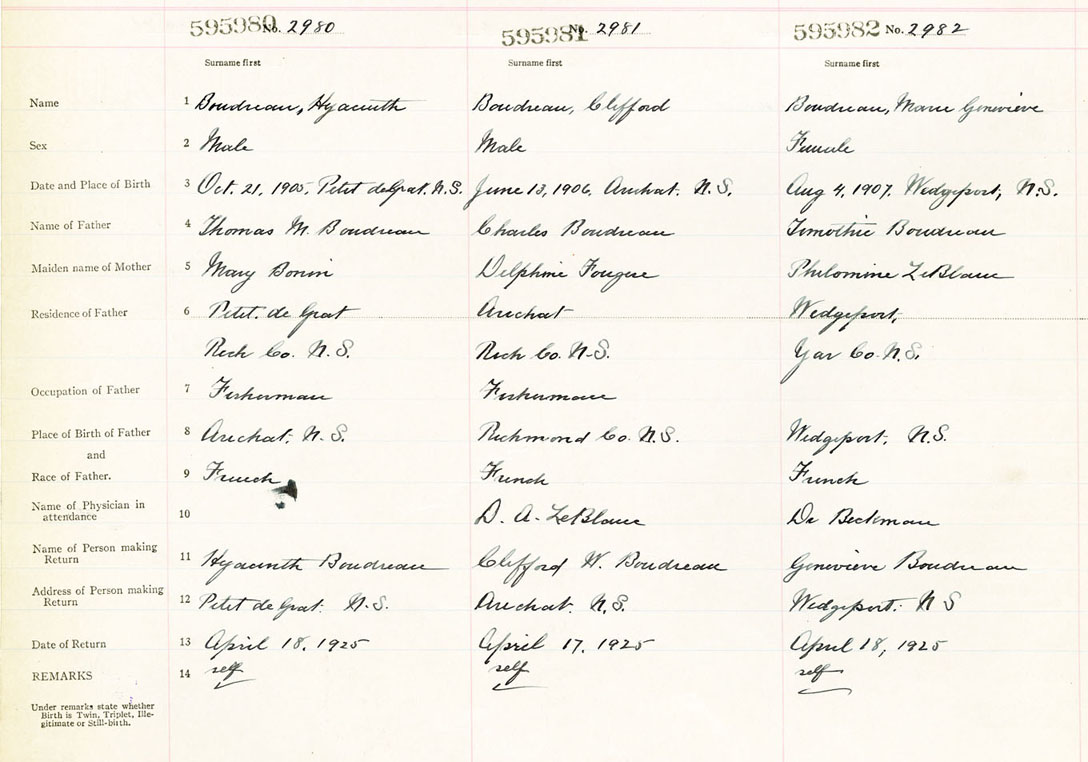 595980 No. 2980 595981 No. 2981 595982 No. 2982
Surname first Surname first Surname first
Name 1 Boudreau, Hyacinth Boudreau, Clifford Boudreau, Marie Genevieve
Sex 2 Male Male Female
Date and Place of Birth 3 Oct. 21, 1905, Petit de Grat. N.S. June 13, 1906, Arichat. N.S. Aug 4, 1907. Wedgeport, N.S.
Name of Father 4 Thomas M. Boudreau Charles Boudreau Timothie Boudreau
Maiden name of Mother 5 Mary Bonin Delphine Fougere Philomine LeBlanc
Residence of Father 6 Petit. de Grat Arichat Wedgeport,
Rich Co. N.S. Rich Co. N.S. Yar Co. N.S.
Occupation of Father 7 Fisherman Fisherman
Place of Birth of Father 8 Arichat, N.S. Richmond Co. N.S. Wedgeport, N.S.
and
Race of Father. 9 French French French
Name of Physician in
attendance 10 D. A. LeBlanc Dr Beckman
Name of Person making
Return 11 Hyacinth Boudreau Clifford W. Boudreau Genevieve Boudreau
Address of Person making
Return 12 Petit de Grat. N.S. Arichat. N.S. Wedgeport. N S
Date of Return 13 April 18, 1925 April 17, 1925 April 18, 1925
REMARKS 14 self self self
Under remarks state whether
Birth is Twin, Triplet, Ille-
gitimate or Still-birth.